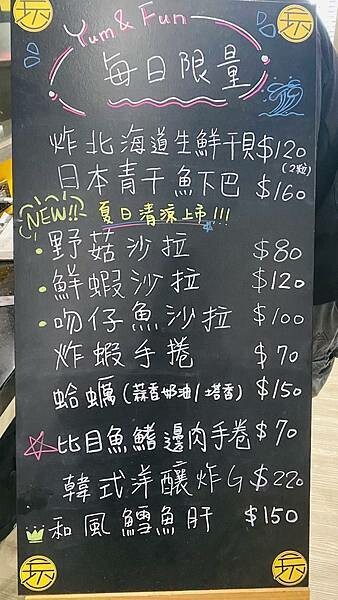 玩
玩
Yum & Fun
每日限量
炸北海道生鮮干貝$120
(2粒)
日本青干魚下巴 $160
NEW!! 夏日清涼上市!!!
•野菇沙拉 $80
•鮮蝦沙拉 $120
•吻仔魚沙拉 $100
炸蝦手捲 $70
蛤蠣(蒜香奶油/塔香) $150
比目魚鰭邊肉手卷 $70
韓式洋釀炸G $220
和風鱈魚肝 $150
玩
玩